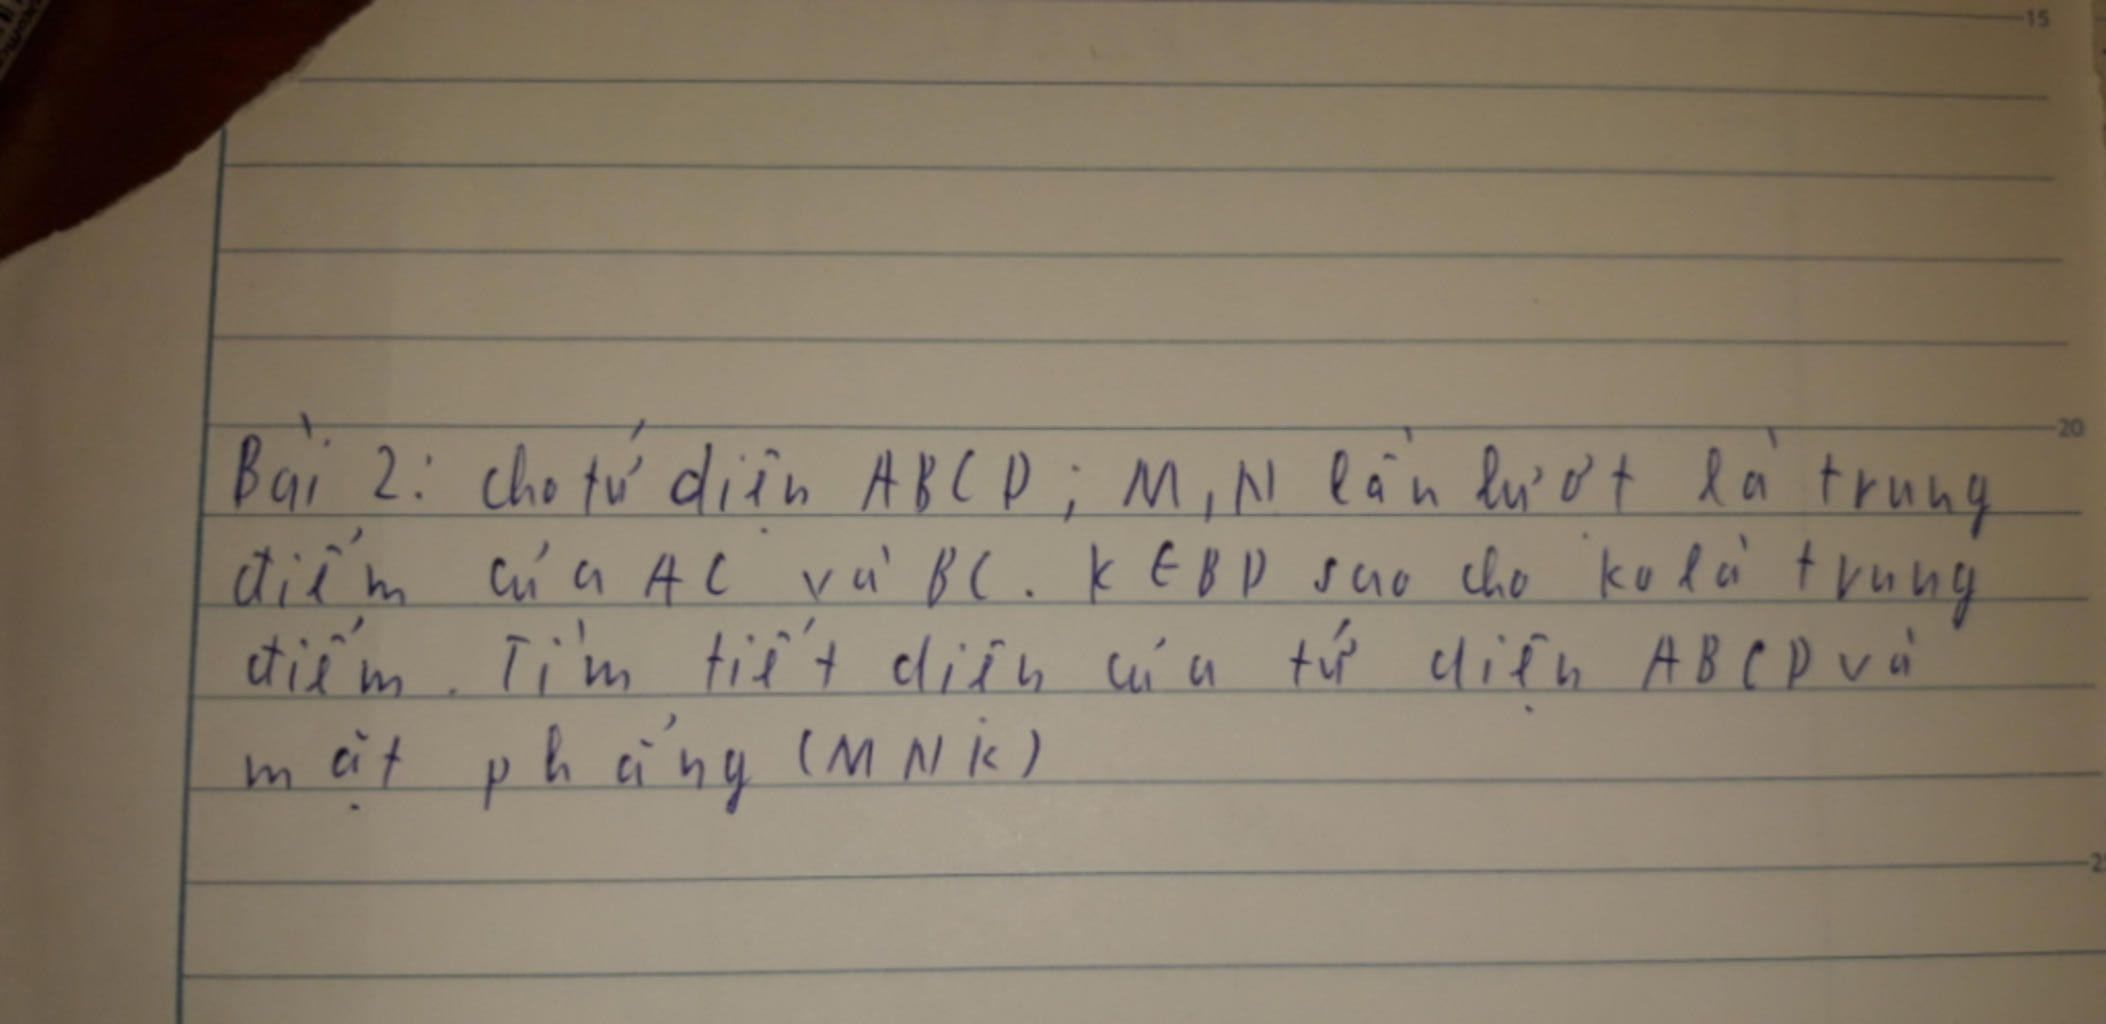 15
20
Bài 2: cho tứ diện ABCD; M, N lần lượt là trung
điểm của AC và BC. K ∈ BD sao cho ko là trung
điểm. Tìm tiết diện của tứ diện ABCD và
mặt phẳng (MNK)